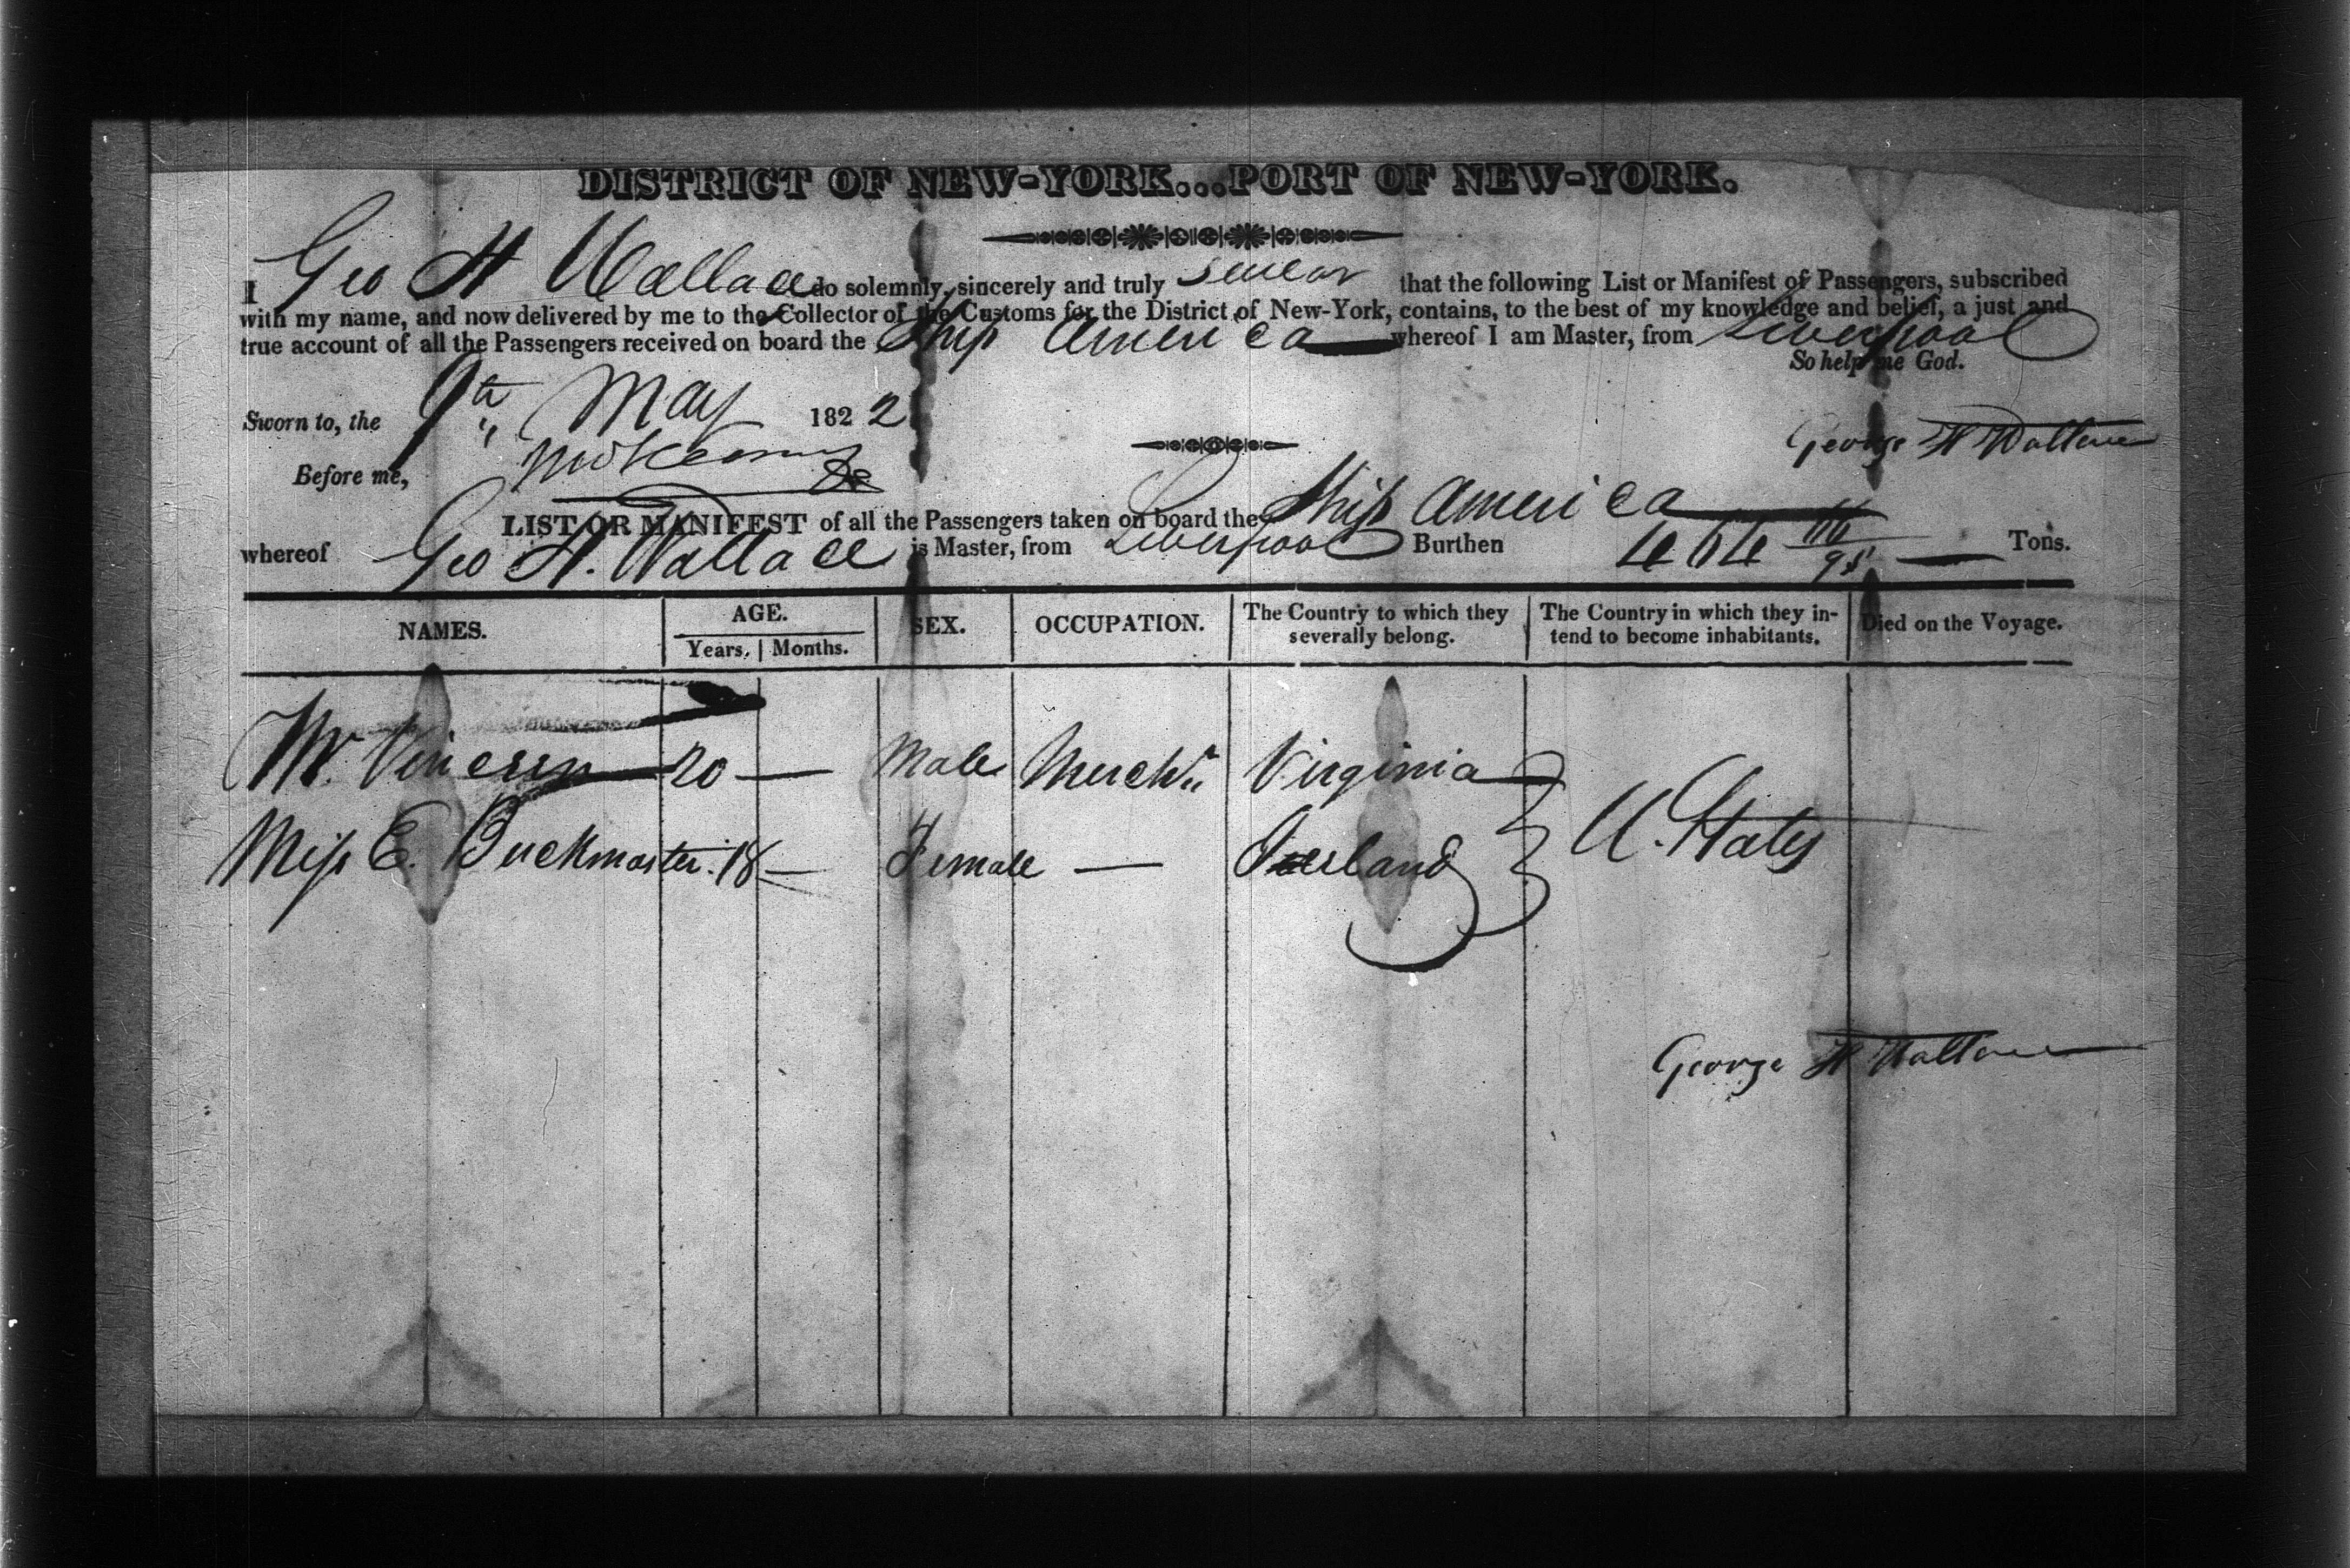 DISTRICT OF NEW-YORK...PORT OF NEW-YORK.
I Geo H Wallace do solemnly, sincerely and truly swear that the following List or Manifest of Passengers, subscribed
with my name, and now delivered by me to the Collector of the Customs for the District of New-York, contains, to the best of my knowledge and belief, a just and
true account of all the Passengers received on board the Ship America whereof I am Master, from Liverpool
So help me God.
Sworn to, the 9th May 1822
George H Wallace
Before me,
LIST OR MANIFEST of all the Passengers taken on board the Ship America
whereof Geo H. Wallace is Master, from Liverpool Burthen 464 /95 Tons.
NAMES. AGE. SEX. OCCUPATION. The Country to which they severally belong. The Country in which they intend to become inhabitants. Died on the Voyage.
Years. Months.
Mr. 20 — Male Mercht Virginia
Miss E. Buckmaster. 18 — Female — Ireland U. States
George H Wallace